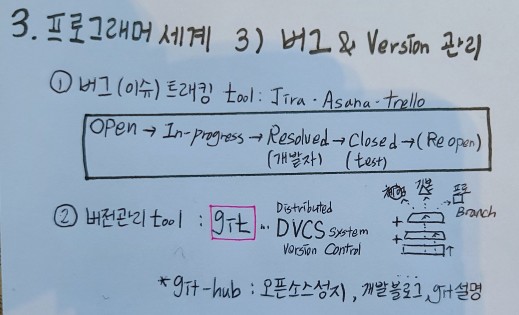 3. 프로그래머 세계 3) 버그 & Version 관리
① 버그(이슈) 트래킹 tool : Jira · Asana · trello
OPen → In-progress → Resolved → Closed → (Reopen)
(개발자) (test)
② 버전관리 tool : git ...
Distributed
DVCS system
Version Control
기본
Branch
+
+
*git-hub : 오픈소스성지, 개발블로그, git설명